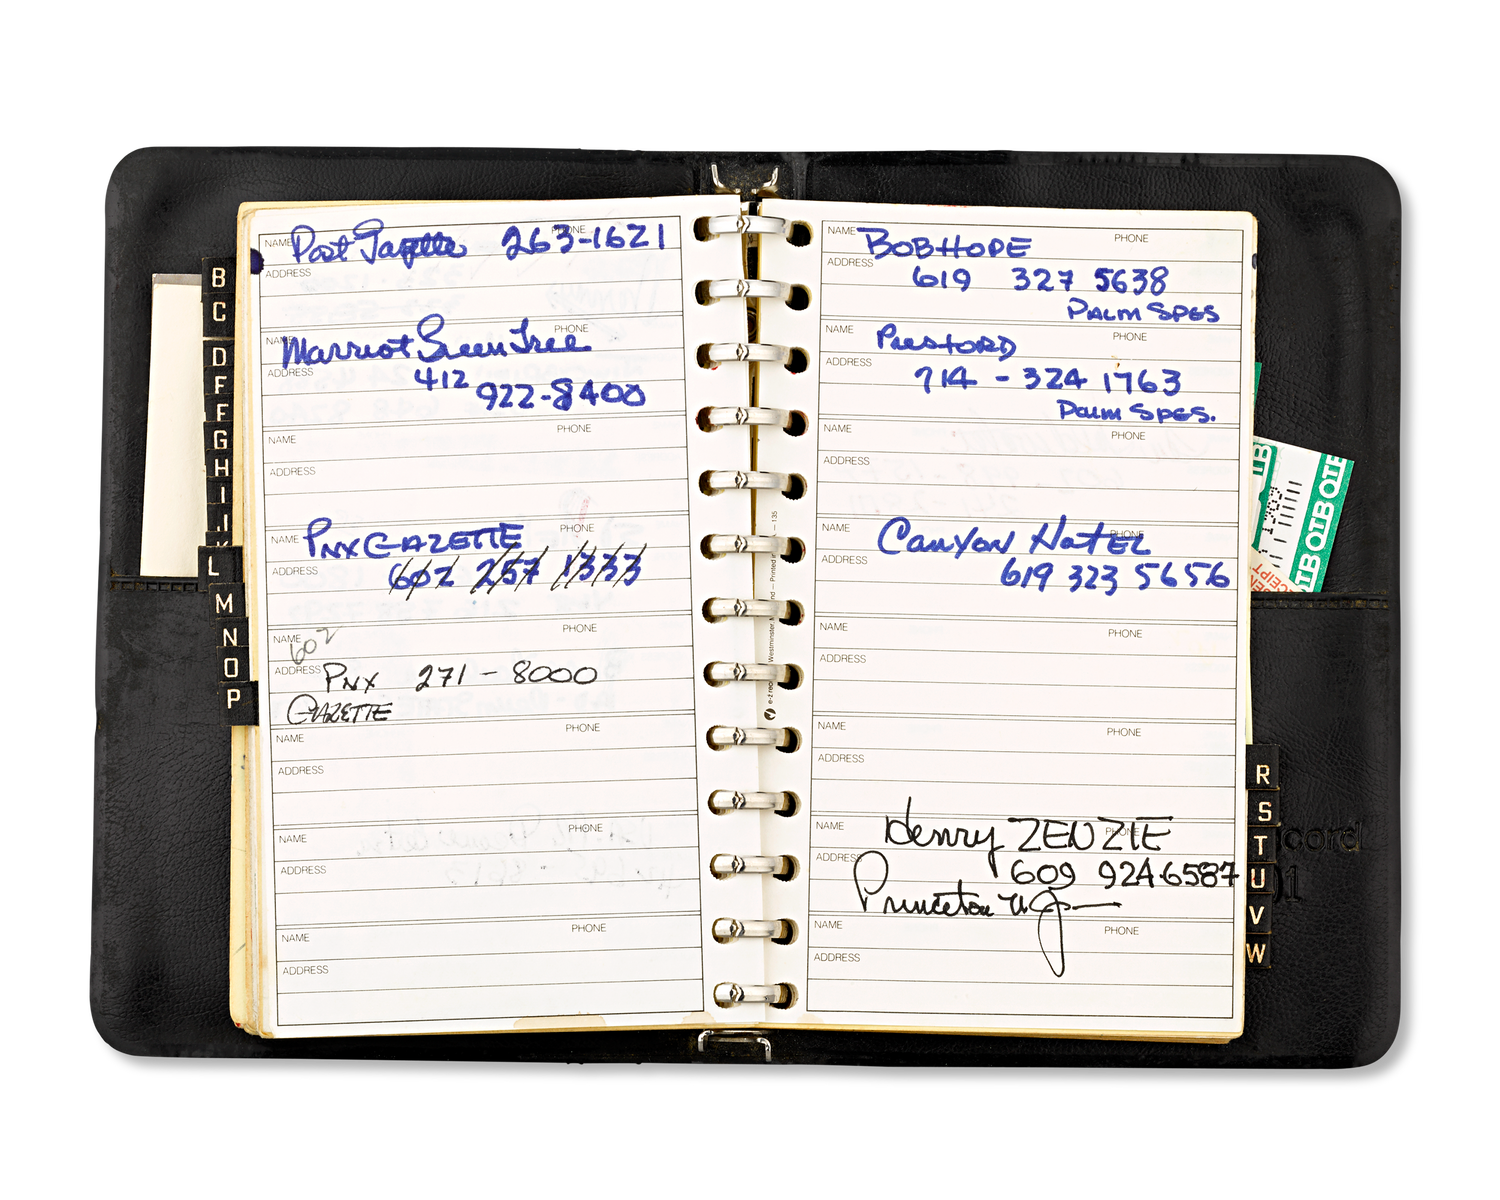 B
C
D
F
F
G
H
I
J
K
L
M
N
O
P
NAME Post Gazette PHONE 263-1621
ADDRESS
NAME PHONE
Marriot Green Tree
ADDRESS 412
922-8400
NAME PHONE
ADDRESS
PHONE
PNX GAZETTE
ADDRESS 602 257 1333
NAME PHONE
602
ADDRESS PNX 271-8000
GAZETTE
NAME PHONE
ADDRESS
NAME PHONE
ADDRESS
NAME PHONE
ADDRESS
135
NAME BOB HOPE PHONE
ADDRESS 619 327 5638
PALM SPGS
NAME PHONE
ADDRESS
714 - 324 1763
Palm SPGS.
NAME PHONE
ADDRESS
NAME PHONE
Canyon Hotel
ADDRESS
619 323 5656
NAME PHONE
ADDRESS
NAME PHONE
ADDRESS
NAME Henry ZENZIE PHONE
ADDRESS 609 924-6587
Princeton NJ
NAME PHONE
ADDRESS
R
S
T
U
V
W
cord
01
OTB OTB OTB